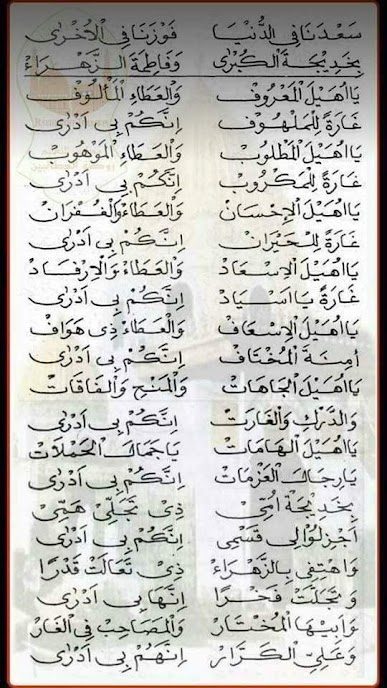 سَعْدُنَا فِى الدُّنْيَا فَوْزُنَا فِى الْاُخْرٰى
بِخَدِيْجَةَ الْكُبْرٰى وَفَاطِمَةَ الزَّهْرَاءْ
يَااُهَيْلَ الْمَعْرُوْفْ وَالْعَطَاءِ الْمَأْلُوْفْ
غَارَةً لِلْمَلْهُوْفْ اِنَّكُمْ بِى اَدْرٰى
يَااُهَيْلَ الْمَطْلُوْبْ وَالْعَطَاءِ الْمَوْهُوْبْ
غَارَةً لِلْمَكْرُوْبْ اِنَّكُمْ بِى اَدْرٰى
يَااُهَيْلَ الْاِحْسَانْ وَالْعَطَاءْ وَالْغُفْرَانْ
غَارَةً لِلْحَيْرَانْ اِنَّكُمْ بِى اَدْرٰى
يَااُهَيْلَ الْاِسْعَادْ وَالْعَطَاءْ وَالْاِرْفَادْ
غَارَةً يَااَسْيَادْ اِنَّكُمْ بِى اَدْرٰى
يَااُهَيْلَ الْاِسْعَافْ وَالْعَطَاءْ ذِى هَوَافْ
اَمِنَةَ الْمُخْتَافْ اِنَّكُمْ بِى اَدْرٰى
يَااُهَيْلَ الْجَاهَاتْ وَالْمَنْحِ وَالْفَاقَاتْ
وَالدَّرْكِ وَالْغَارَتْ اِنَّكُمْ بِى اَدْرٰى
يَااُهَيْلَ الْهَامَاتْ يَاجَمَالَ الْحَمْلَاتْ
يَارِجَالَ الْعَزْمَاتْ اِنَّكُمْ بِى اَدْرٰى
بِخَدِيْجَةْ اُمِّى ذِى تَجَلِّى هَمِّى
اَجْزِلُوْالِى قَسْمِى اِنَّكُمْ بِى اَدْرٰى
وَاهْتِفِى بِالزَّهْرَاءْ ذِى تَعَالَتْ قَدْرًا
وَتَجَلَّتْ فَخْرًا اِنَّهَا بِى اَدْرٰى
وَاَبِيْهَا الْمُخْتَارْ وَالْمُصَاحِبْ فِى الْغَارْ
وَعَلِيِّ الْكَرَّارْ اِنَّهُمْ بِى اَدْرٰى